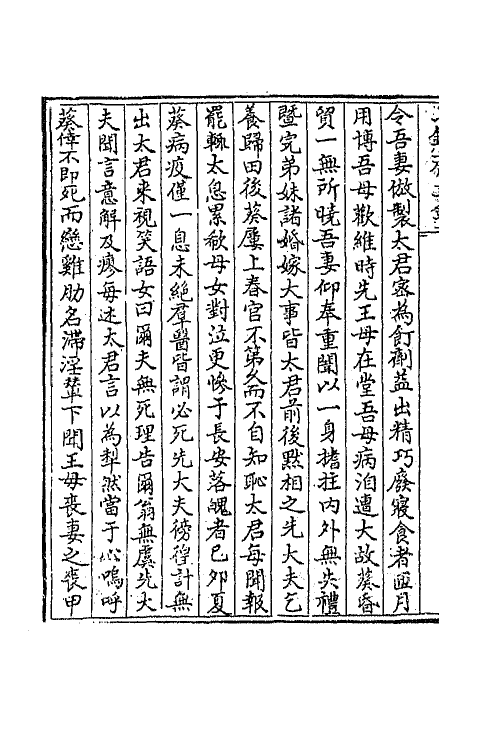 令吾妻倣製太君密為飣劑益出精巧廢寢食者匝月
用博吾母歡維時先王母在堂吾母病洎遭大故葵昏
貿一無所曉吾妻仰奉重闈以一身搘拄內外無失禮
暨完弟妹諸婚嫁大事皆太君前後黙相之先大夫乞
養歸田後葵屢上春官不第久而不自知恥太君每聞報
罷輒太息累欷母女對泣更慘于長安落魄者己夘夏
葵病疫僅一息未絕羣醫皆謂必死先大夫徬徨計無
出太君来視笑語女曰爾夫無死理告爾翁無虞先大
夫聞言意解及瘳每述太君言以為犁然當于心嗚呼
葵倖不即死而戀雞肋名滯淫輦下聞王母喪妻之喪甲